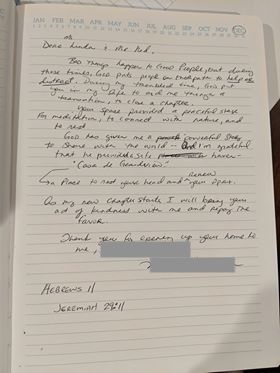 JAN FEB MAR APR MAY JUN JUL AUG SEP OCT NOV DEC
Ms.
Dear Linda & Mr. Ked,
Bad things happen to Good People, but during
those times, God puts people on their path to help
distress. During my transition time, God put
you in my life to aid me through a
transition, to close a chapter.
Your space provided a peaceful stage
for meditation, to connect with nature, and
to rest
God has given me a powerful story
to share with the world - and I'm grateful
that he provided a safe haven -
"Casa de
- a Place to rest your head and renew your spirit.
As my new chapter starts I will bring your
act of kindness with me and repay the
favor.
Thank you for opening up your home to
me,
HEBREWS 11
JEREMIAH 29:11